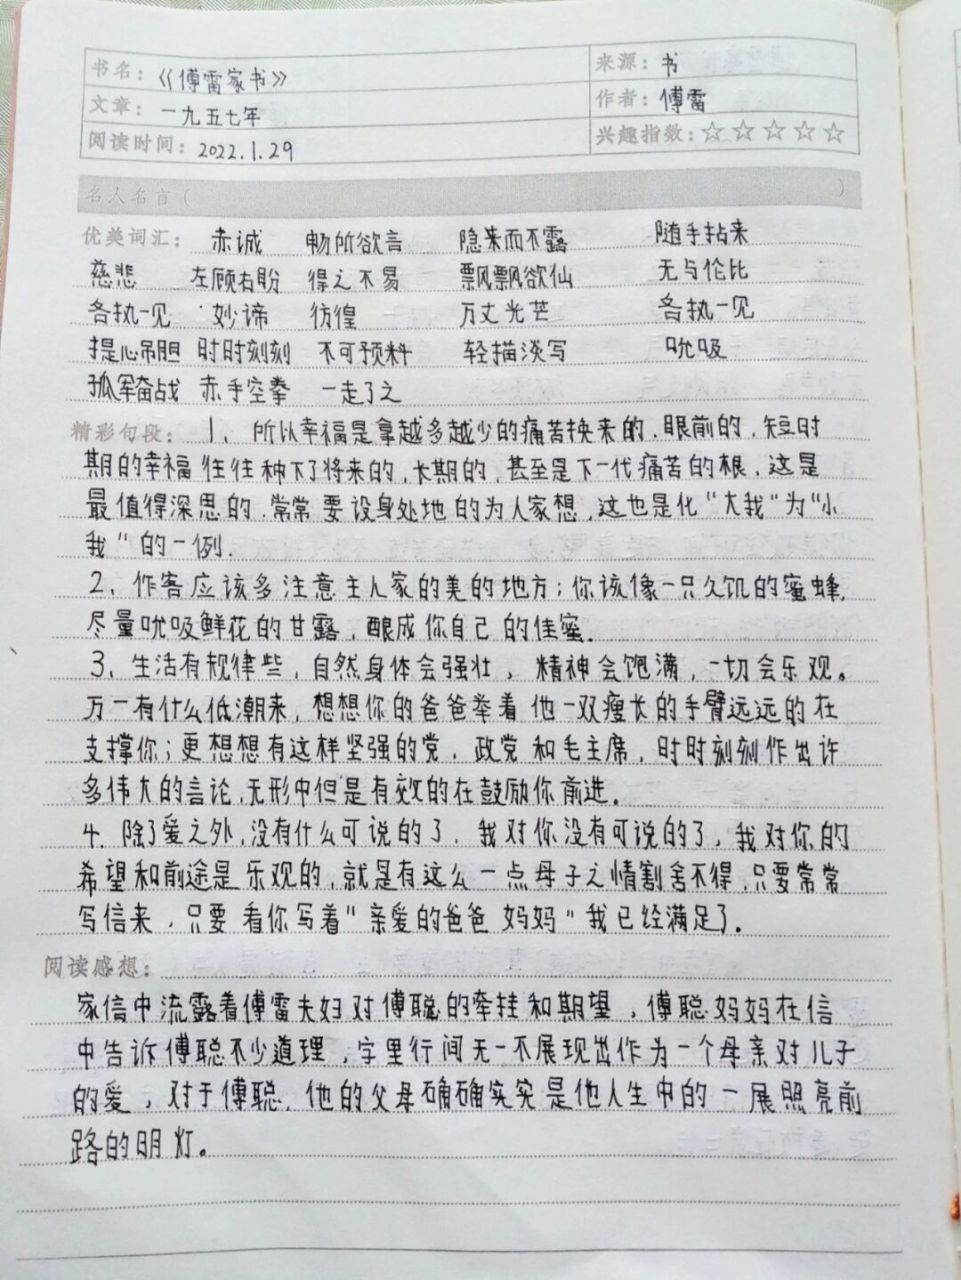 书名：《傅雷家书》 来源：书
文章：一九五七年 作者：傅雷
阅读时间：2022.1.29 兴趣指数：☆☆☆☆☆
名人名言（ ）
优美词汇： 赤诚 畅所欲言 隐来而不露 随手拈来
慈悲 左顾右盼 得之不易 飘飘欲仙 无与伦比
各执一见 妙谛 彷徨 万丈光芒 各执一见
提心吊胆 时时刻刻 不可预料 轻描淡写 吮吸
孤军奋战 赤手空拳 一走了之
精彩句段： 1、所以幸福是拿越多越少的痛苦换来的.眼前的,短时
期的幸福往往种下了将来的,长期的,甚至是下一代痛苦的根,这是
最值得深思的.常常要设身处地的为人家想,这也是化“大我“为“小
我“的一例.
2、作客应该多注意主人家的美的地方；你该像一只久饥的蜜蜂,
尽量吮吸鲜花的甘露,酿成你自己的佳蜜.
3、生活有规律些，自然身体会强壮，精神会饱满，一切会乐观。
万一有什么低潮来，想想你的爸爸举着他一双瘦长的手臂远远的在
支撑你；更想想有这样坚强的党，政党和毛主席，时时刻刻作出许
多伟大的言论,无形中但是有效的在鼓励你前进。
4.除了爱之外,没有什么可说的了，我对你没有可说的了,我对你的
希望和前途是乐观的,就是有这么一点母子之情割舍不得,只要常常
写信来，只要看你写着“亲爱的爸爸妈妈“我已经满足了.
阅读感想：
家信中流露着傅雷夫妇对傅聪的牵挂和期望，傅聪妈妈在信
中告诉傅聪不少道理,字里行间无一不展现出作为一个母亲对儿子
的爱，对于傅聪,他的父母确确实实是他人生中的一展照亮前
路的明灯。